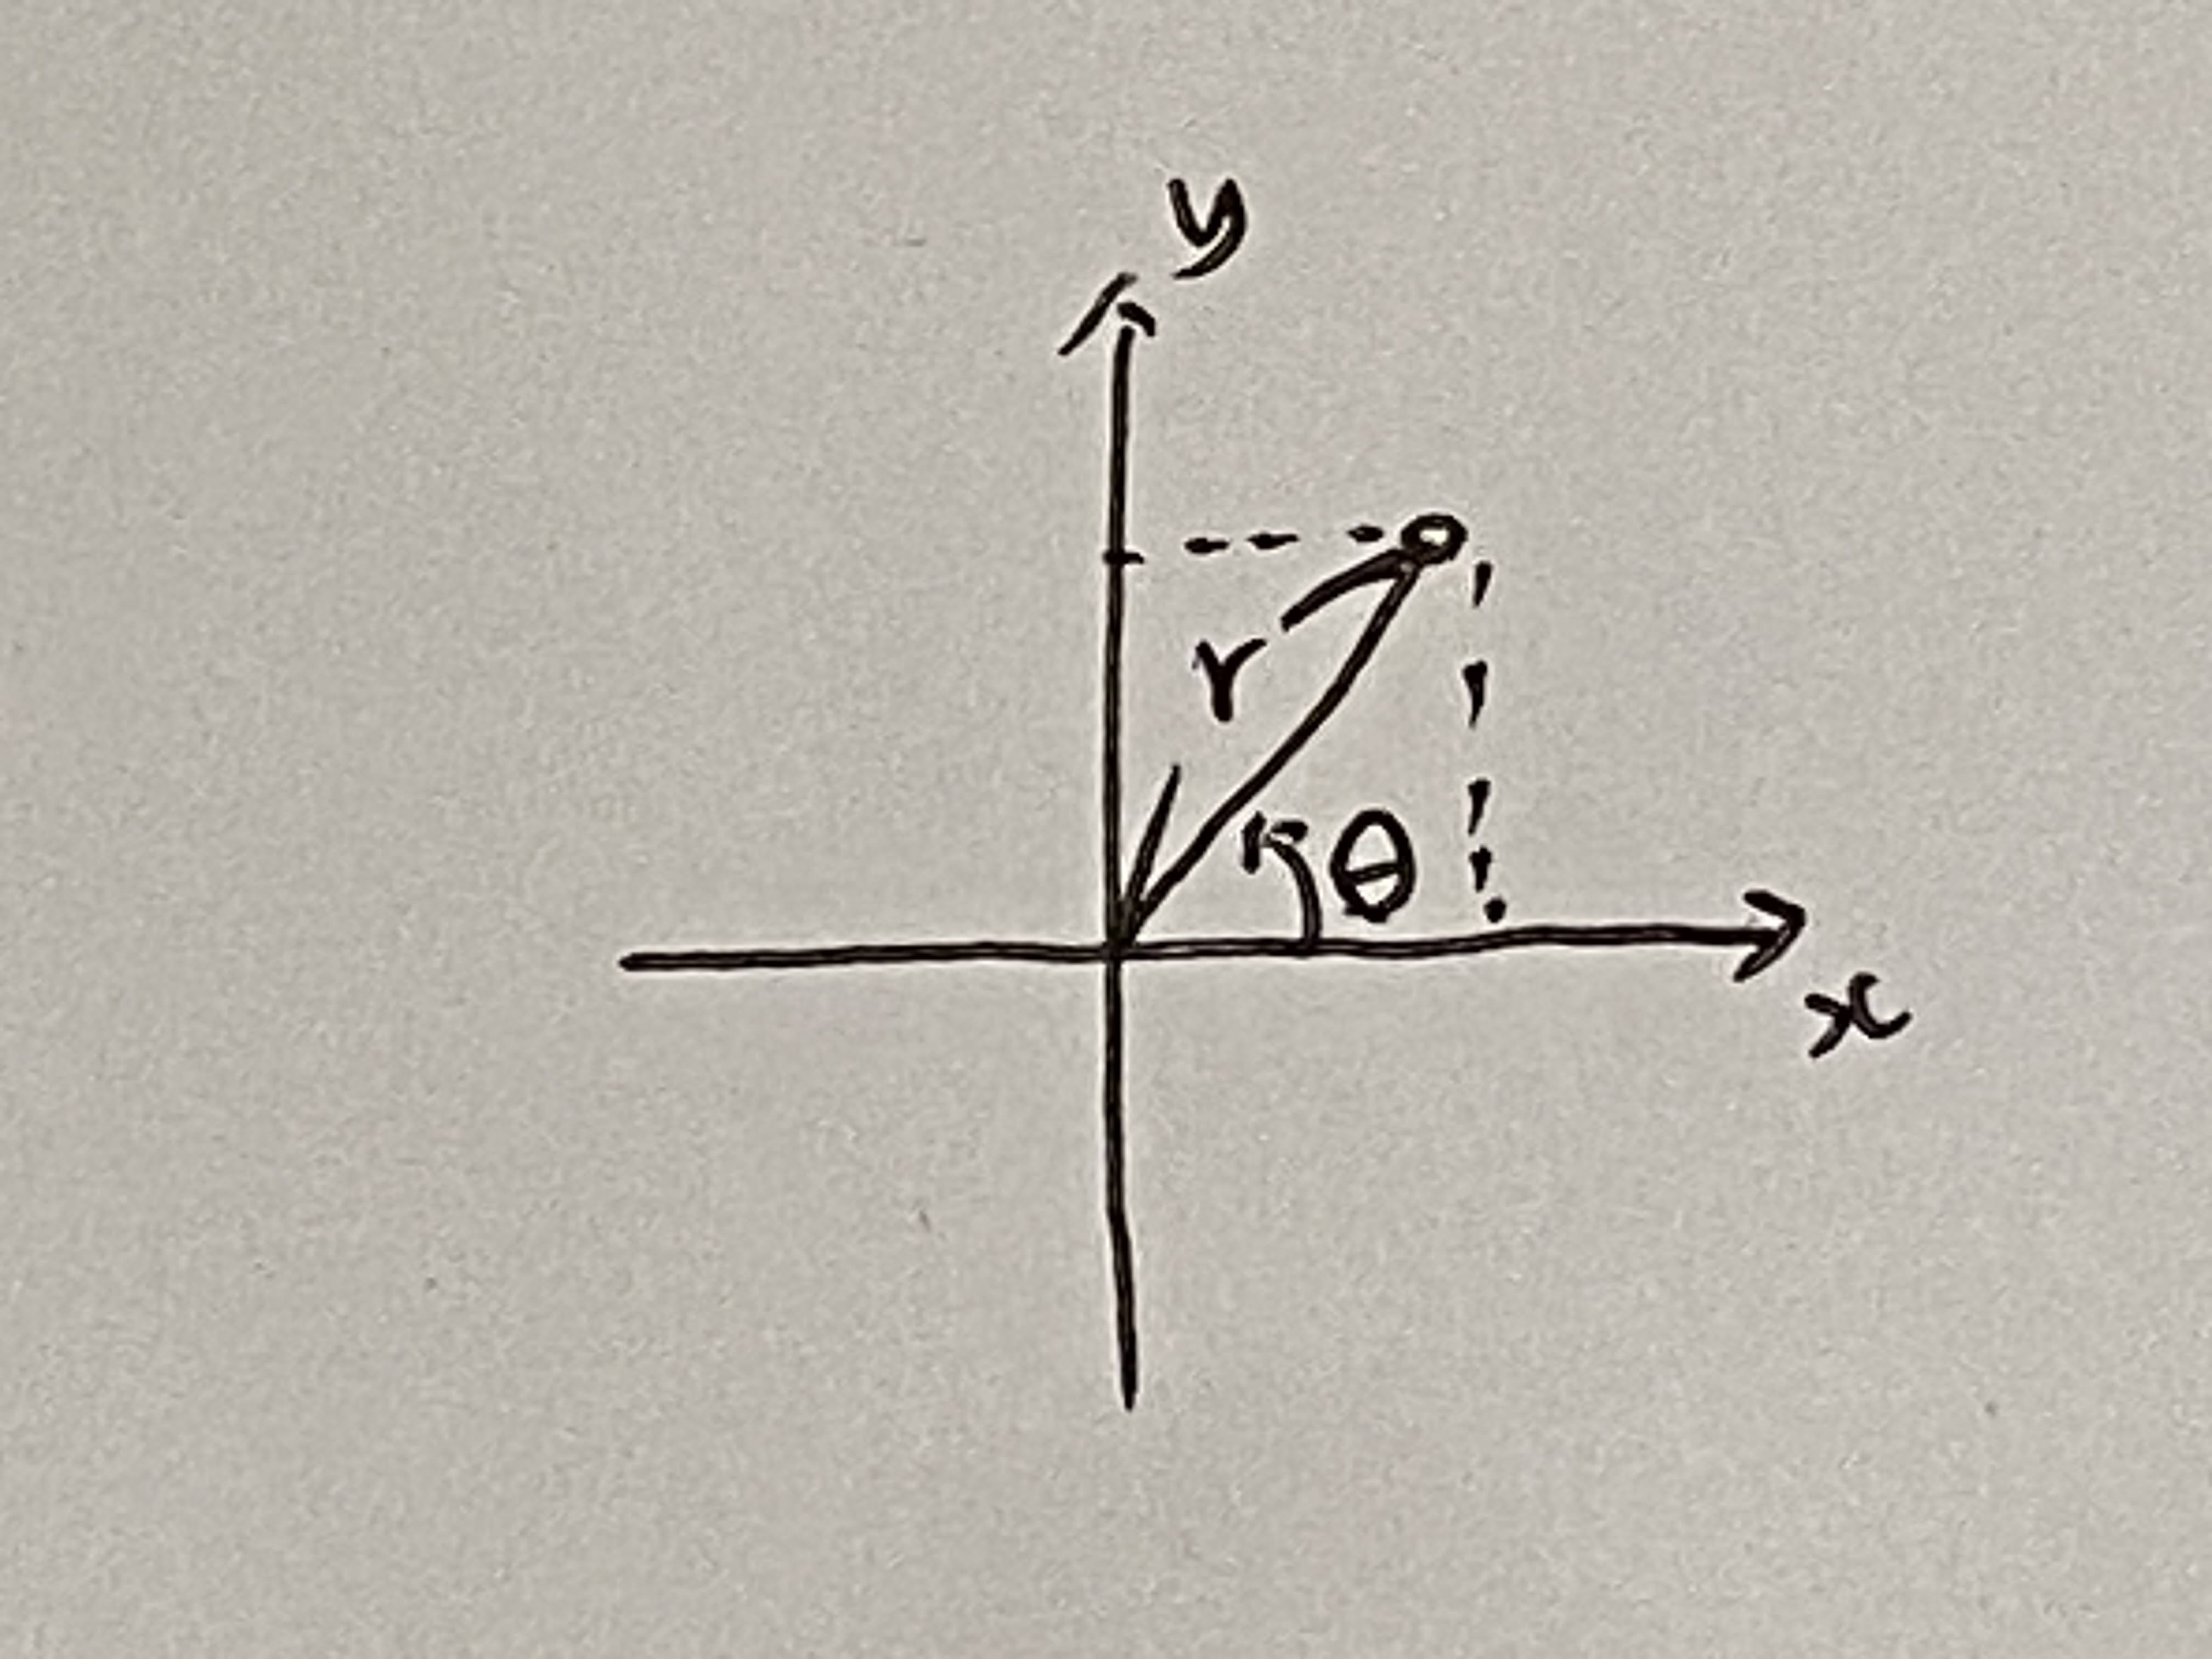 y
r
θ
x